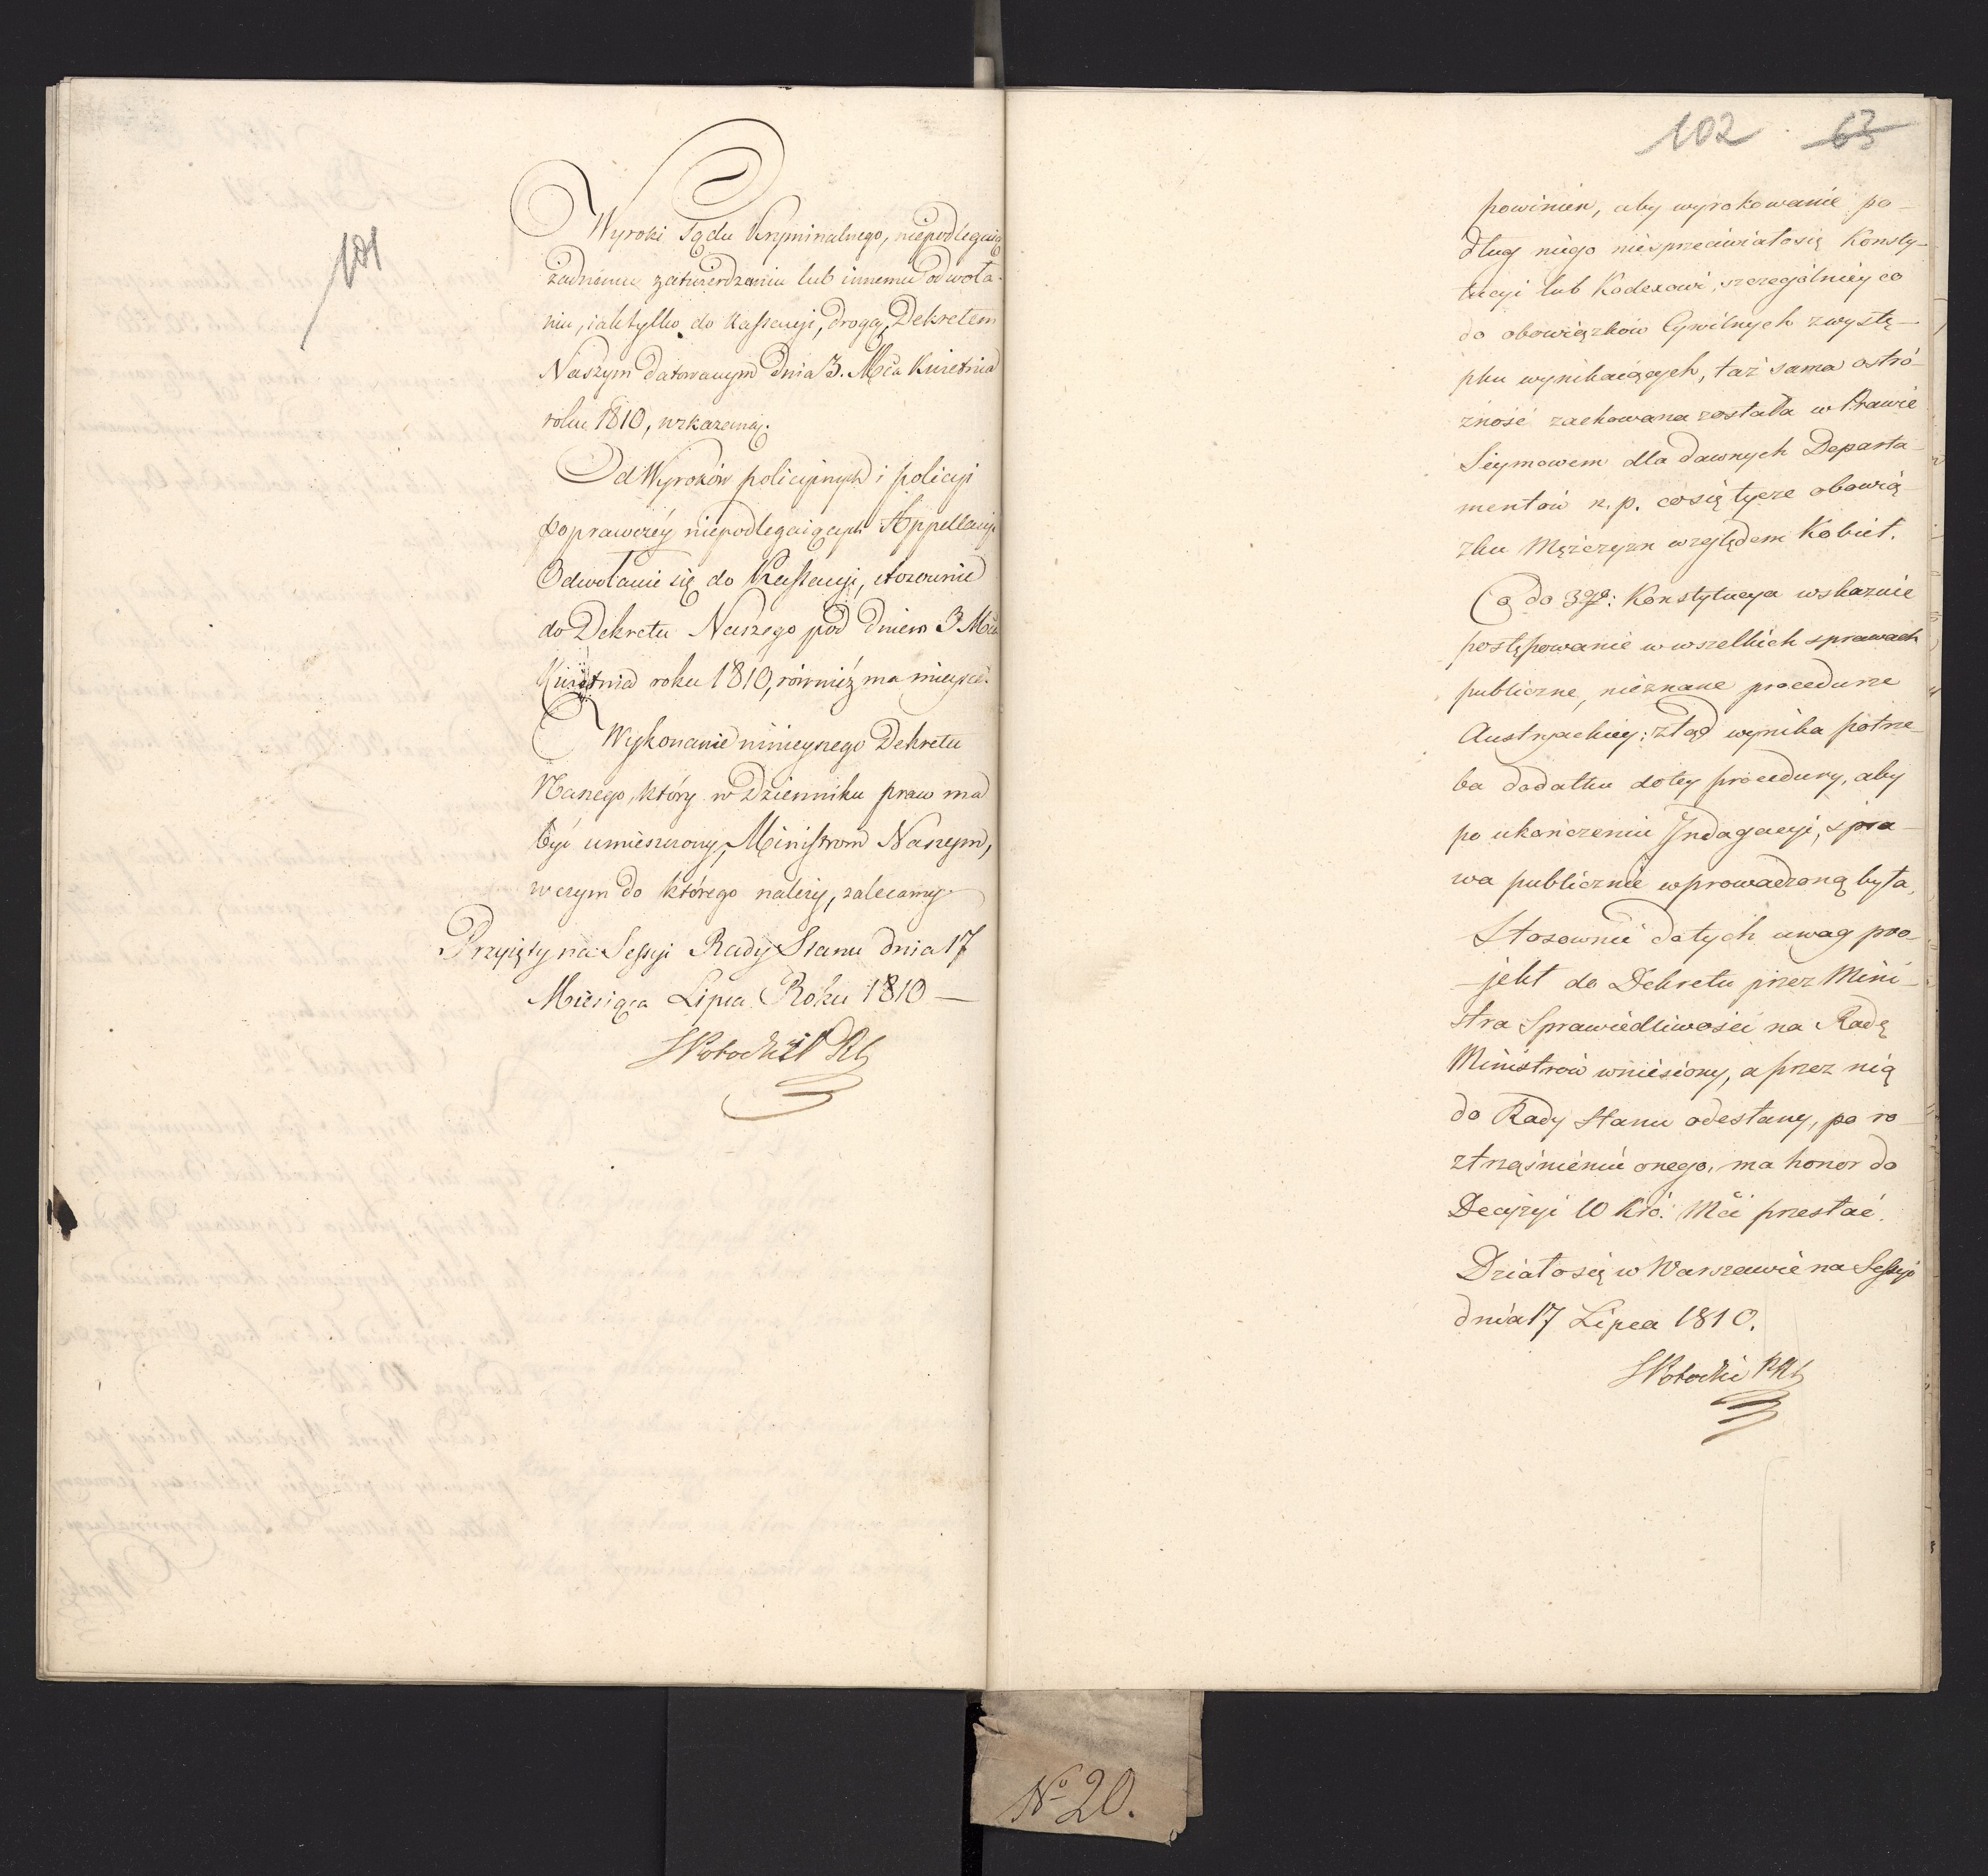 101
Wyroki Sądu Kryminalnego, niepodlegaią
żadnemu zatwierdzeniu lub innemu odwoła-
niu, iak tylko do Kassacyi, drogą Dekretem
Naszym datowanym dnia 3. Mca Kwietnia
roku 1810, wskazaną.
Od Wyroków policyinych i policyi
poprawczéy niepodlegaiących Appellacyi
Odwołanie się do Kassacyi, stosownie
do Dekretu Naszego pod dniem 3 Mca
Kwietnia roku 1810, również ma mieysce.
Wykonanie ninieyszego Dekretu
Naszego, który w Dzienniku praw ma
być umieszczony, Ministrom Naszym,
w czym do którego należy, zalecamy
Przyięty na Sessyi Rady Stanu dnia 17
Miesiąca Lipca Roku 1810 —
102 63
powinien, aby wyrokowanie po-
dług niego niesprzeciwiało się Konsty-
tucyi lub Kodexowi, szczególniey co
do obowiązków Cywilnych z wystę-
pku wynikaiących, taż sama ostró-
żność zachowana została w Prawie
Seymowem dla dawnych Departa-
mentów n. p. co się tycze obowią-
zku Mężczyzn względem Kobiet.
Co do 3go: Konstytucya wskazuie
postępowanie w wszelkich sprawach
publiczne, nieznane procedurze
Austryackiey; ztąd wynika potrze-
ba dodatku do tey procedury, aby
po ukończeniu Jndagacyi, spra-
wa publicznie wprowadzoną była,
Stosownie do tych uwag pro-
-jekt do Dekretu przez Mini-
stra Sprawiedliwości na Radę
Ministrów wniesiony, a przez nią
do Rady Stanu odesłany, po ro-
ztrząśnieniu onego, ma honor do
Decyzyi W Kró: Mci przesłać.
Działo się w Warszawie na Sessyi
dnia 17 Lipca 1810.
SPotocki
No 20.